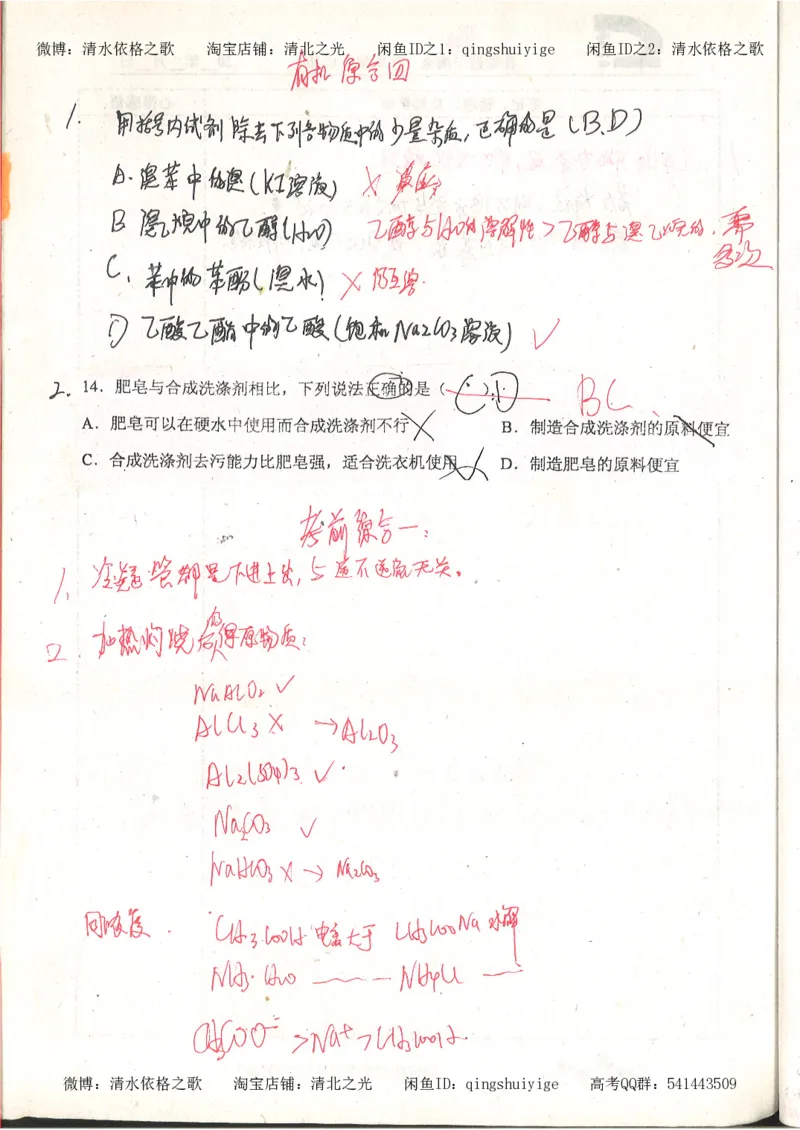 微博：清水依格之歌 淘宝店铺：清北之光 闲鱼ID之1：qingshuiyige 闲鱼ID之2：清水依格之歌
有机综合四
1. 用括号内试剂除去下列各物质中的少量杂质，正确的是（B、D）
A. 溴苯中的溴（KI溶液） ×
B 溴乙烷中的乙醇（H2O） 乙醇与H2O的溶解性>乙醇与溴乙烷的，需
多次
C. 苯中的苯酚（溴水）× 仍互溶.
D 乙酸乙酯中的乙酸（饱和Na2CO3溶液） ✓
2. 14．肥皂与合成洗涤剂相比，下列说法正确的是（ ） BC、
A．肥皂可以在硬水中使用而合成洗涤剂不行 × B．制造合成洗涤剂的原料便宜
C．合成洗涤剂去污能力比肥皂强，适合洗衣机使用 D．制造肥皂的原料便宜
考前综合一：
1、冷凝管都是下进上出，与是不是蒸无关。
2 加热灼烧 仍得原物质：
NaAlO2 ✓
AlCl3 × →Al2O3
Al2(SO4)3 ✓
Na2CO3 ✓
NaHCO3 × → Na2CO3
同浓度. CH3COOH电离大于 CH3COONa水解
NH3·H2O —— NH4Cl —
CH3COO⁻ >Na+ >CH3COOH.
微博：清水依格之歌 淘宝店铺：清北之光 闲鱼ID：qingshuiyige 高考QQ群：541443509